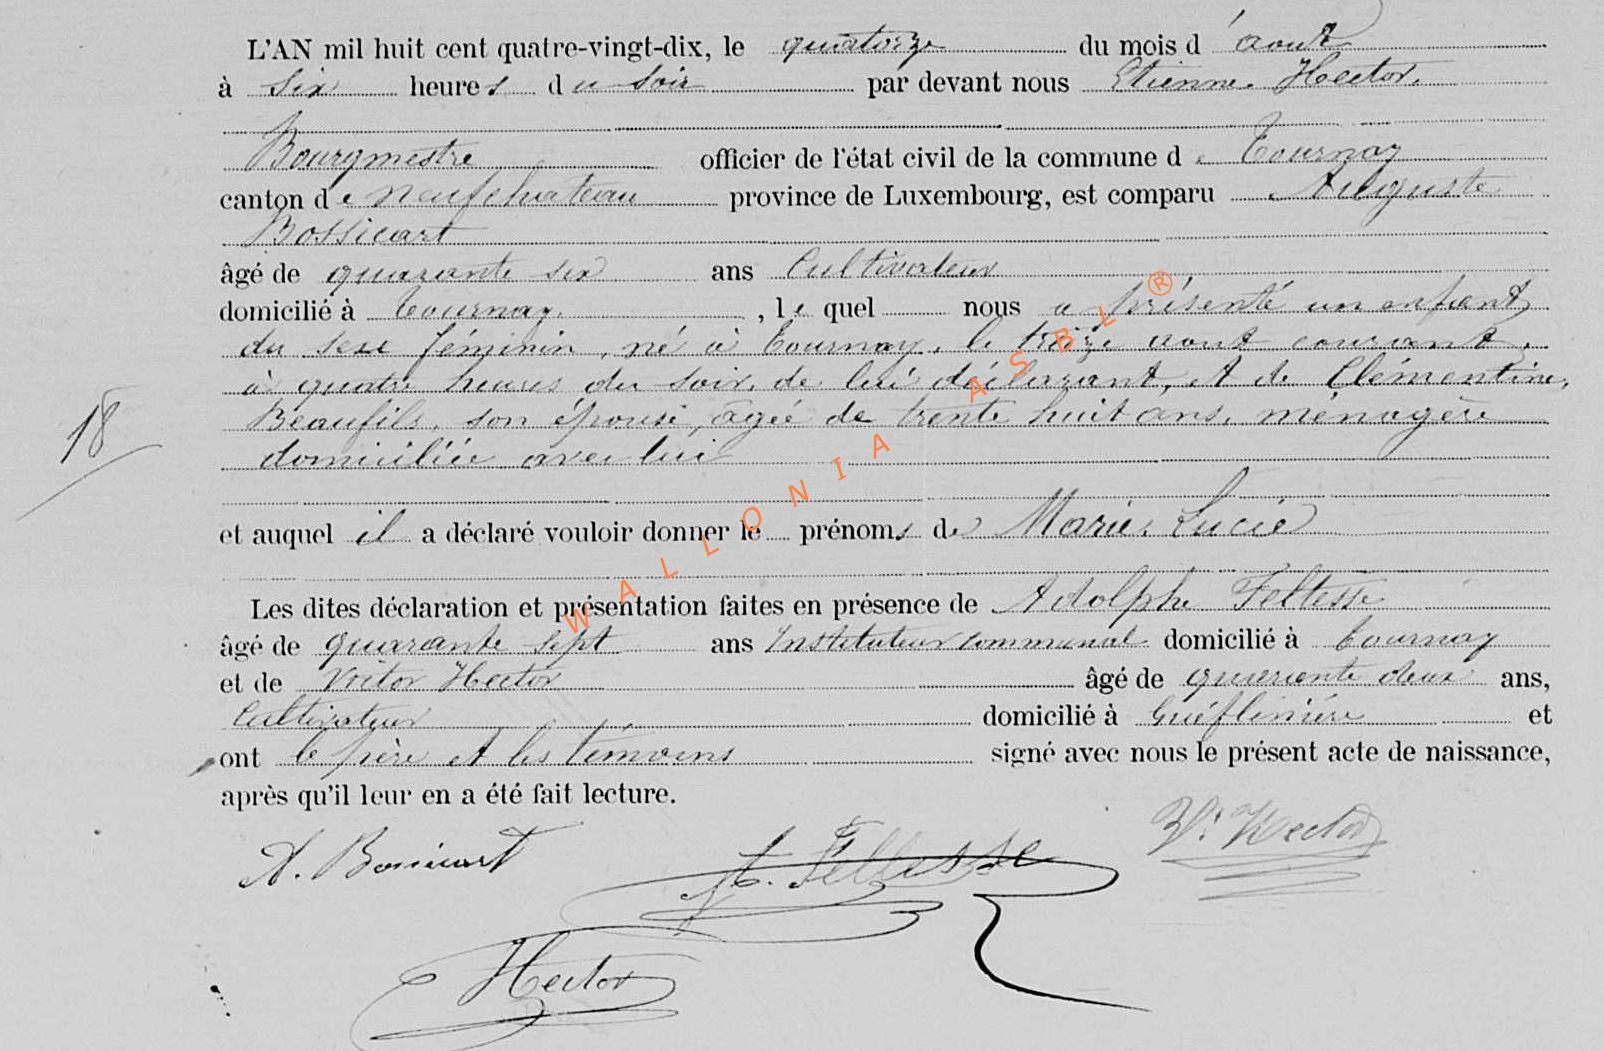 L'AN mil huit cent quatre-vingt-dix, le quatorze du mois d'aout
à six heures du soir par devant nous Etienne Hector,
Bourgmestre officier de l'état civil de la commune de Tournay
canton de Neufchateau province de Luxembourg, est comparu Auguste
Bossicart
âgé de quarante six ans Cultivateur
domicilié à Tournay, le quel nous a présenté un enfant
du sexe féminin, né à Tournay, le treize aout courant,
à quatre heures du soir, de lui déclarant, et de Clémentine,
Beaufils, son épouse, agée de trente huit ans, ménagère
domiciliée avec lui
18
et auquel il a déclaré vouloir donner le prénoms de Marie, Lucie
Les dites déclaration et présentation faites en présence de Adolphe Feltesse
âgé de quarante sept ans Instituteur communal domicilié à Tournay
et de Victor Hector âgé de quarante deux ans,
Cultivateur domicilié à et
ont le père et les témoins signé avec nous le présent acte de naissance,
après qu'il leur en a été fait lecture.
A. Bossicart A. Feltesse Vr Hector
Hector
WALLONIA ASBL ®